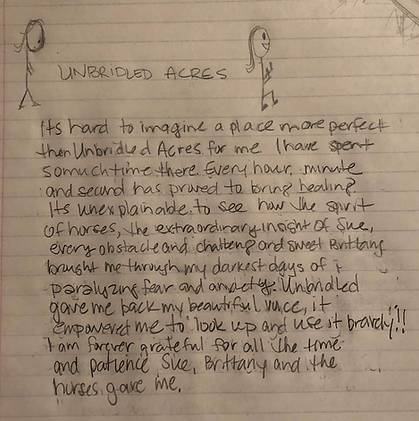 UNBRIDLED ACRES
Its hard to imagine a place more perfect
then Unbridled Acres for me I have spent
somuch time there Every hour, minute
and second has proved to bring healing.
Its unexplainable to see how the spirit
of horses, the extraordinary insight of Sue,
every obstacle and challeng and sweet Brittany
brought me through my darkest days of
paralyzing fear and anxiety. Unbridled
gave me back my beautiful voice, it
empowered me to look up and use it bravely!!
I am forever grateful for all the time
and patience Sue, Brittany and the
horses gave me.